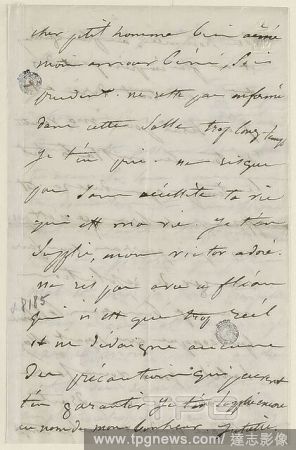 cher ptit homme bien aimé
mon amour béni, sois
prudent. ne reste pas enfermé
dans cette salle trop longtemps
je t'en prie. ne risque
pas sans nécessité ta vie
qui est ma vie. je t'en
supplie, mon victor adoré.
ne ris pas avec ce fléau
qui n'est que trop réel
et ne dédaigne aucune
des précautions qui peuvent
t'en garantir. je t'en supplie encore
au nom de mon bonheur.
8185
TPG
www.tpgnews.com 達志影像